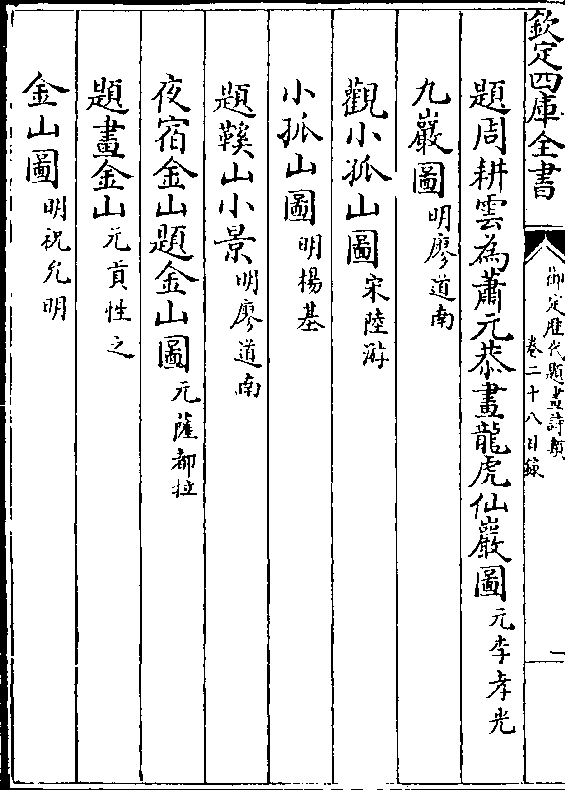 欽定四庫全書
御定歷代題畫詩類
卷二十八目録
一
題周耕雲為蕭元恭畫龍虎仙巖圖 元李孝光
九巖圖 明廖道南
觀小孤山圖 宋陸游
小孤山圖 明楊基
題鞵山小景 明廖道南
夜宿金山題金山圖 元薩都拉
題畫金山 元貢性之
金山圖 明祝允明